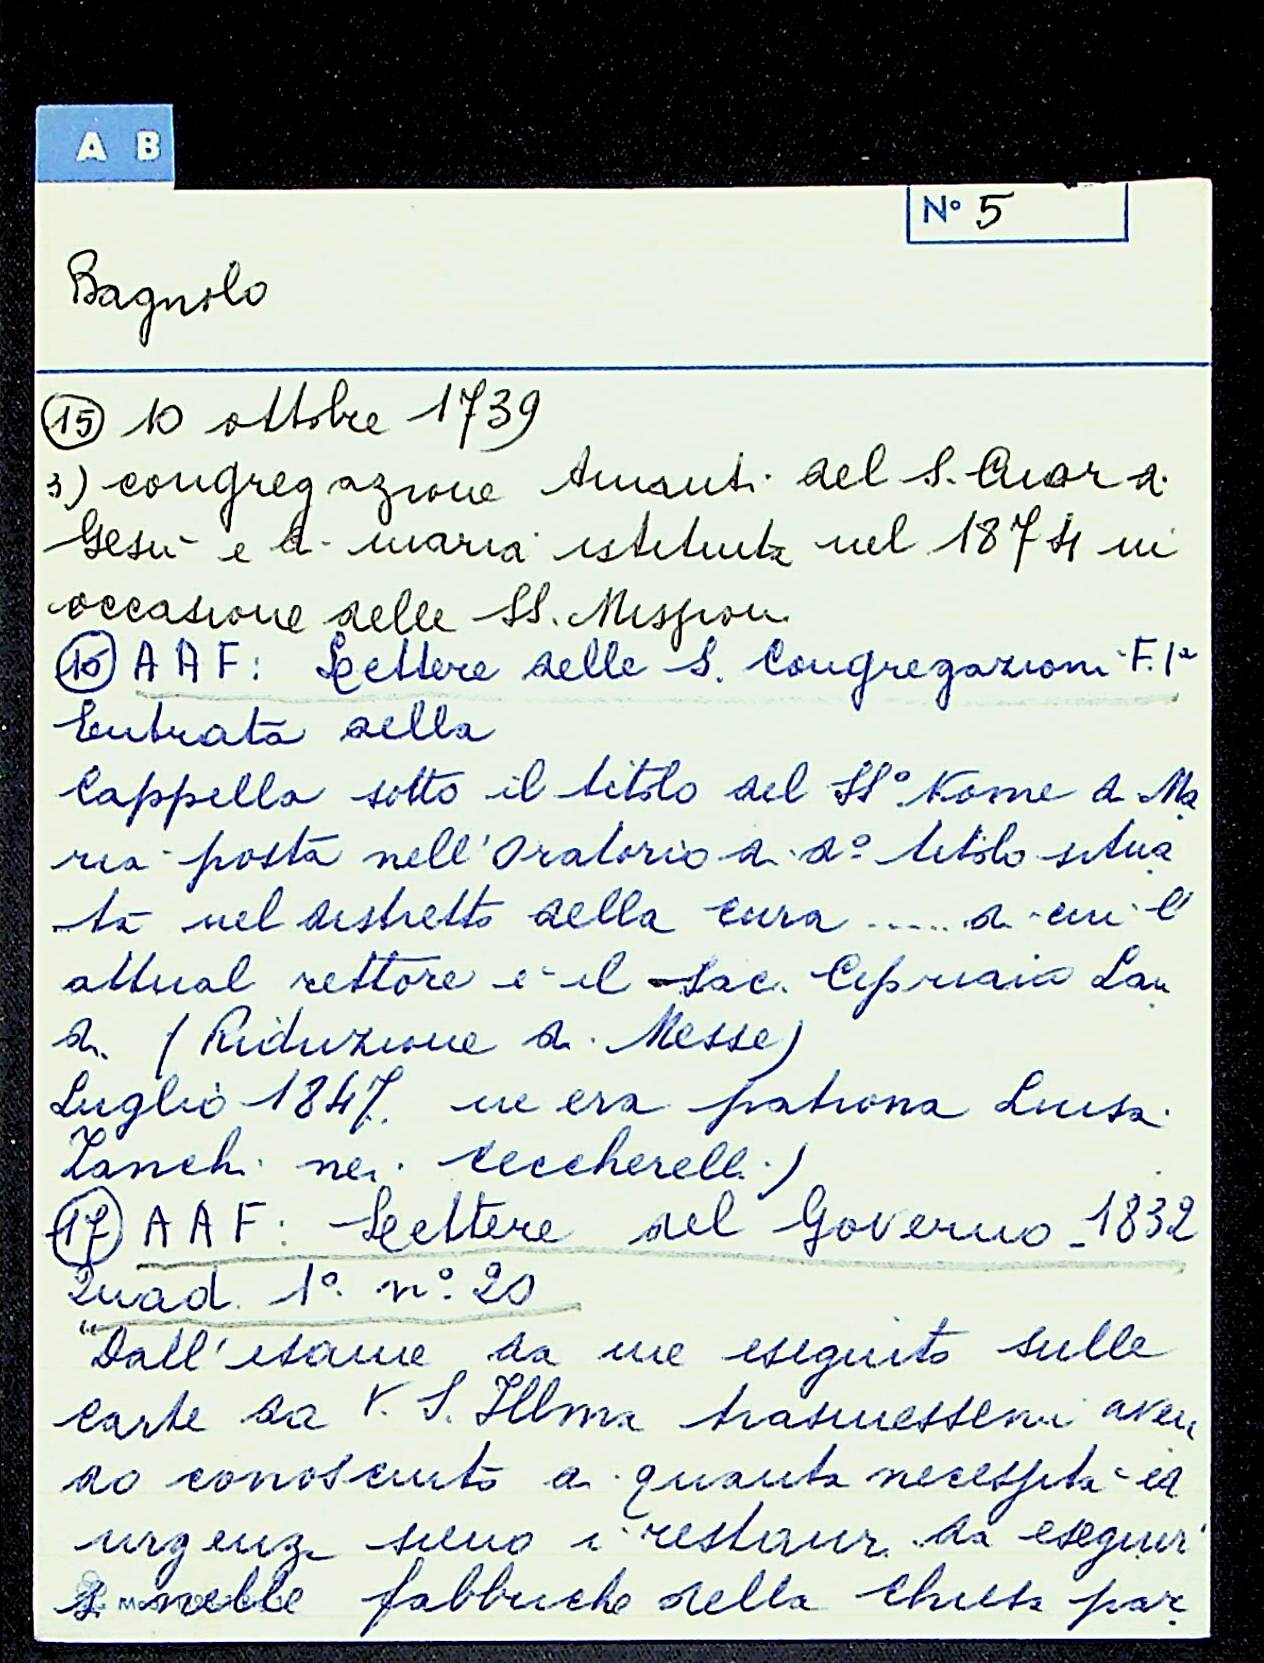 A B
N° 5
Bagnolo
15 10 ottobre 1739
3) congregazione Amanti del S. Cuor di
Gesù e di Maria istituita nel 1874 in
occasione delle SS. Missioni
16 AAF: Lettere delle S. Congregazioni F. 1ª
Entrata della
Cappella sotto il titolo del SS° Nome di Ma
ria posta nell'Oratorio di d° titolo situa
ta nel distretto della cura ..... di cui l'
attual rettore è il sac. Cipriano Lan
di (Riduzione di Messe)
Luglio 1847. ne era patrona Luisa
Zanchi nei Ceccherelli)
17 AAF: Lettere del Governo - 1832
Quad. 1° n° 20
"Dall'esame da me eseguito sulle
carte da V. S. Illma trasmessemi aven
do conosciuto di quanta necessità ed
urgenza sieno i restauri da eseguir
si nelle fabbriche della Chiesa par